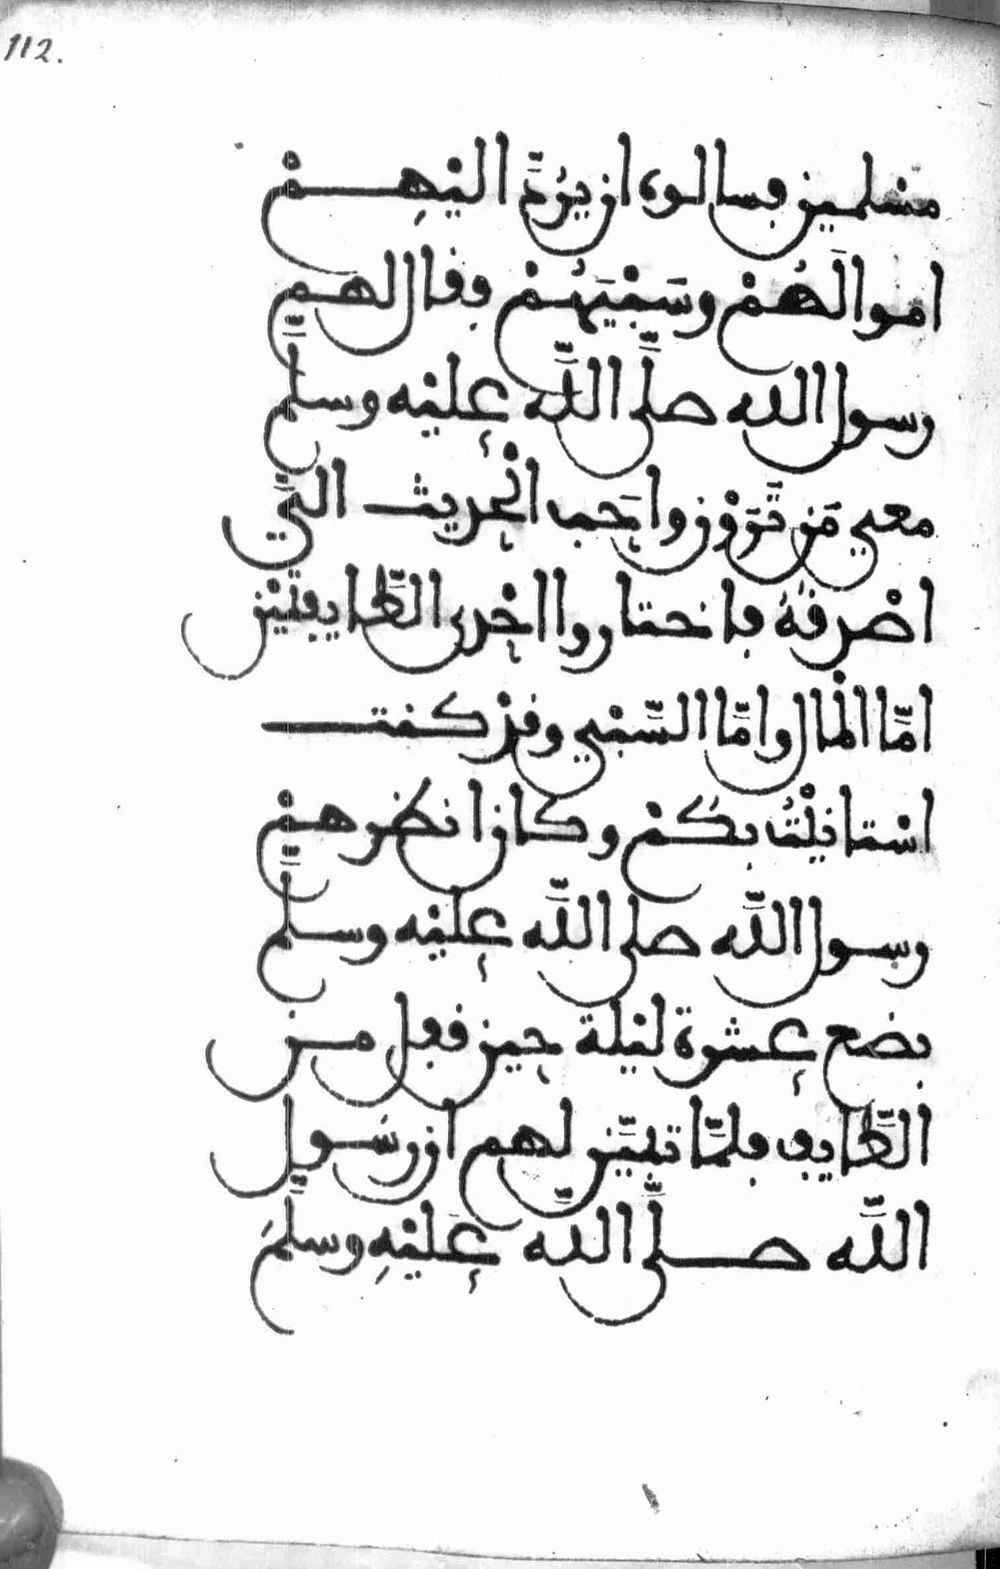 112.
مسلمين فسالوه ان يَرُدَّ اليْهِمْ
اموالَهُمْ وسَبْيَهُمْ فقال لهم
رسول الله صلَّى اللَّه عليْه وسلَّم
معي مَن تَرَوْن واَحب الْحديث الىَّ
اصْدقُهُ فاختاروا احْدى الطَّايفتيْن
امَّا الْمال وامَّا السَّبْي وقدْ كنت
اسْتانيْتُ بكُمْ وكان انظرهمْ
رسول اللَّه صلى اللَّه عليْه وسلَّم
بضع عشرة ليْلة حين قفل من
الطَّايف فلمَّا تبيَّن لهم ان رسُول
اللَّه صلَّى اللَّه عَليْهِ وسلَّمَ